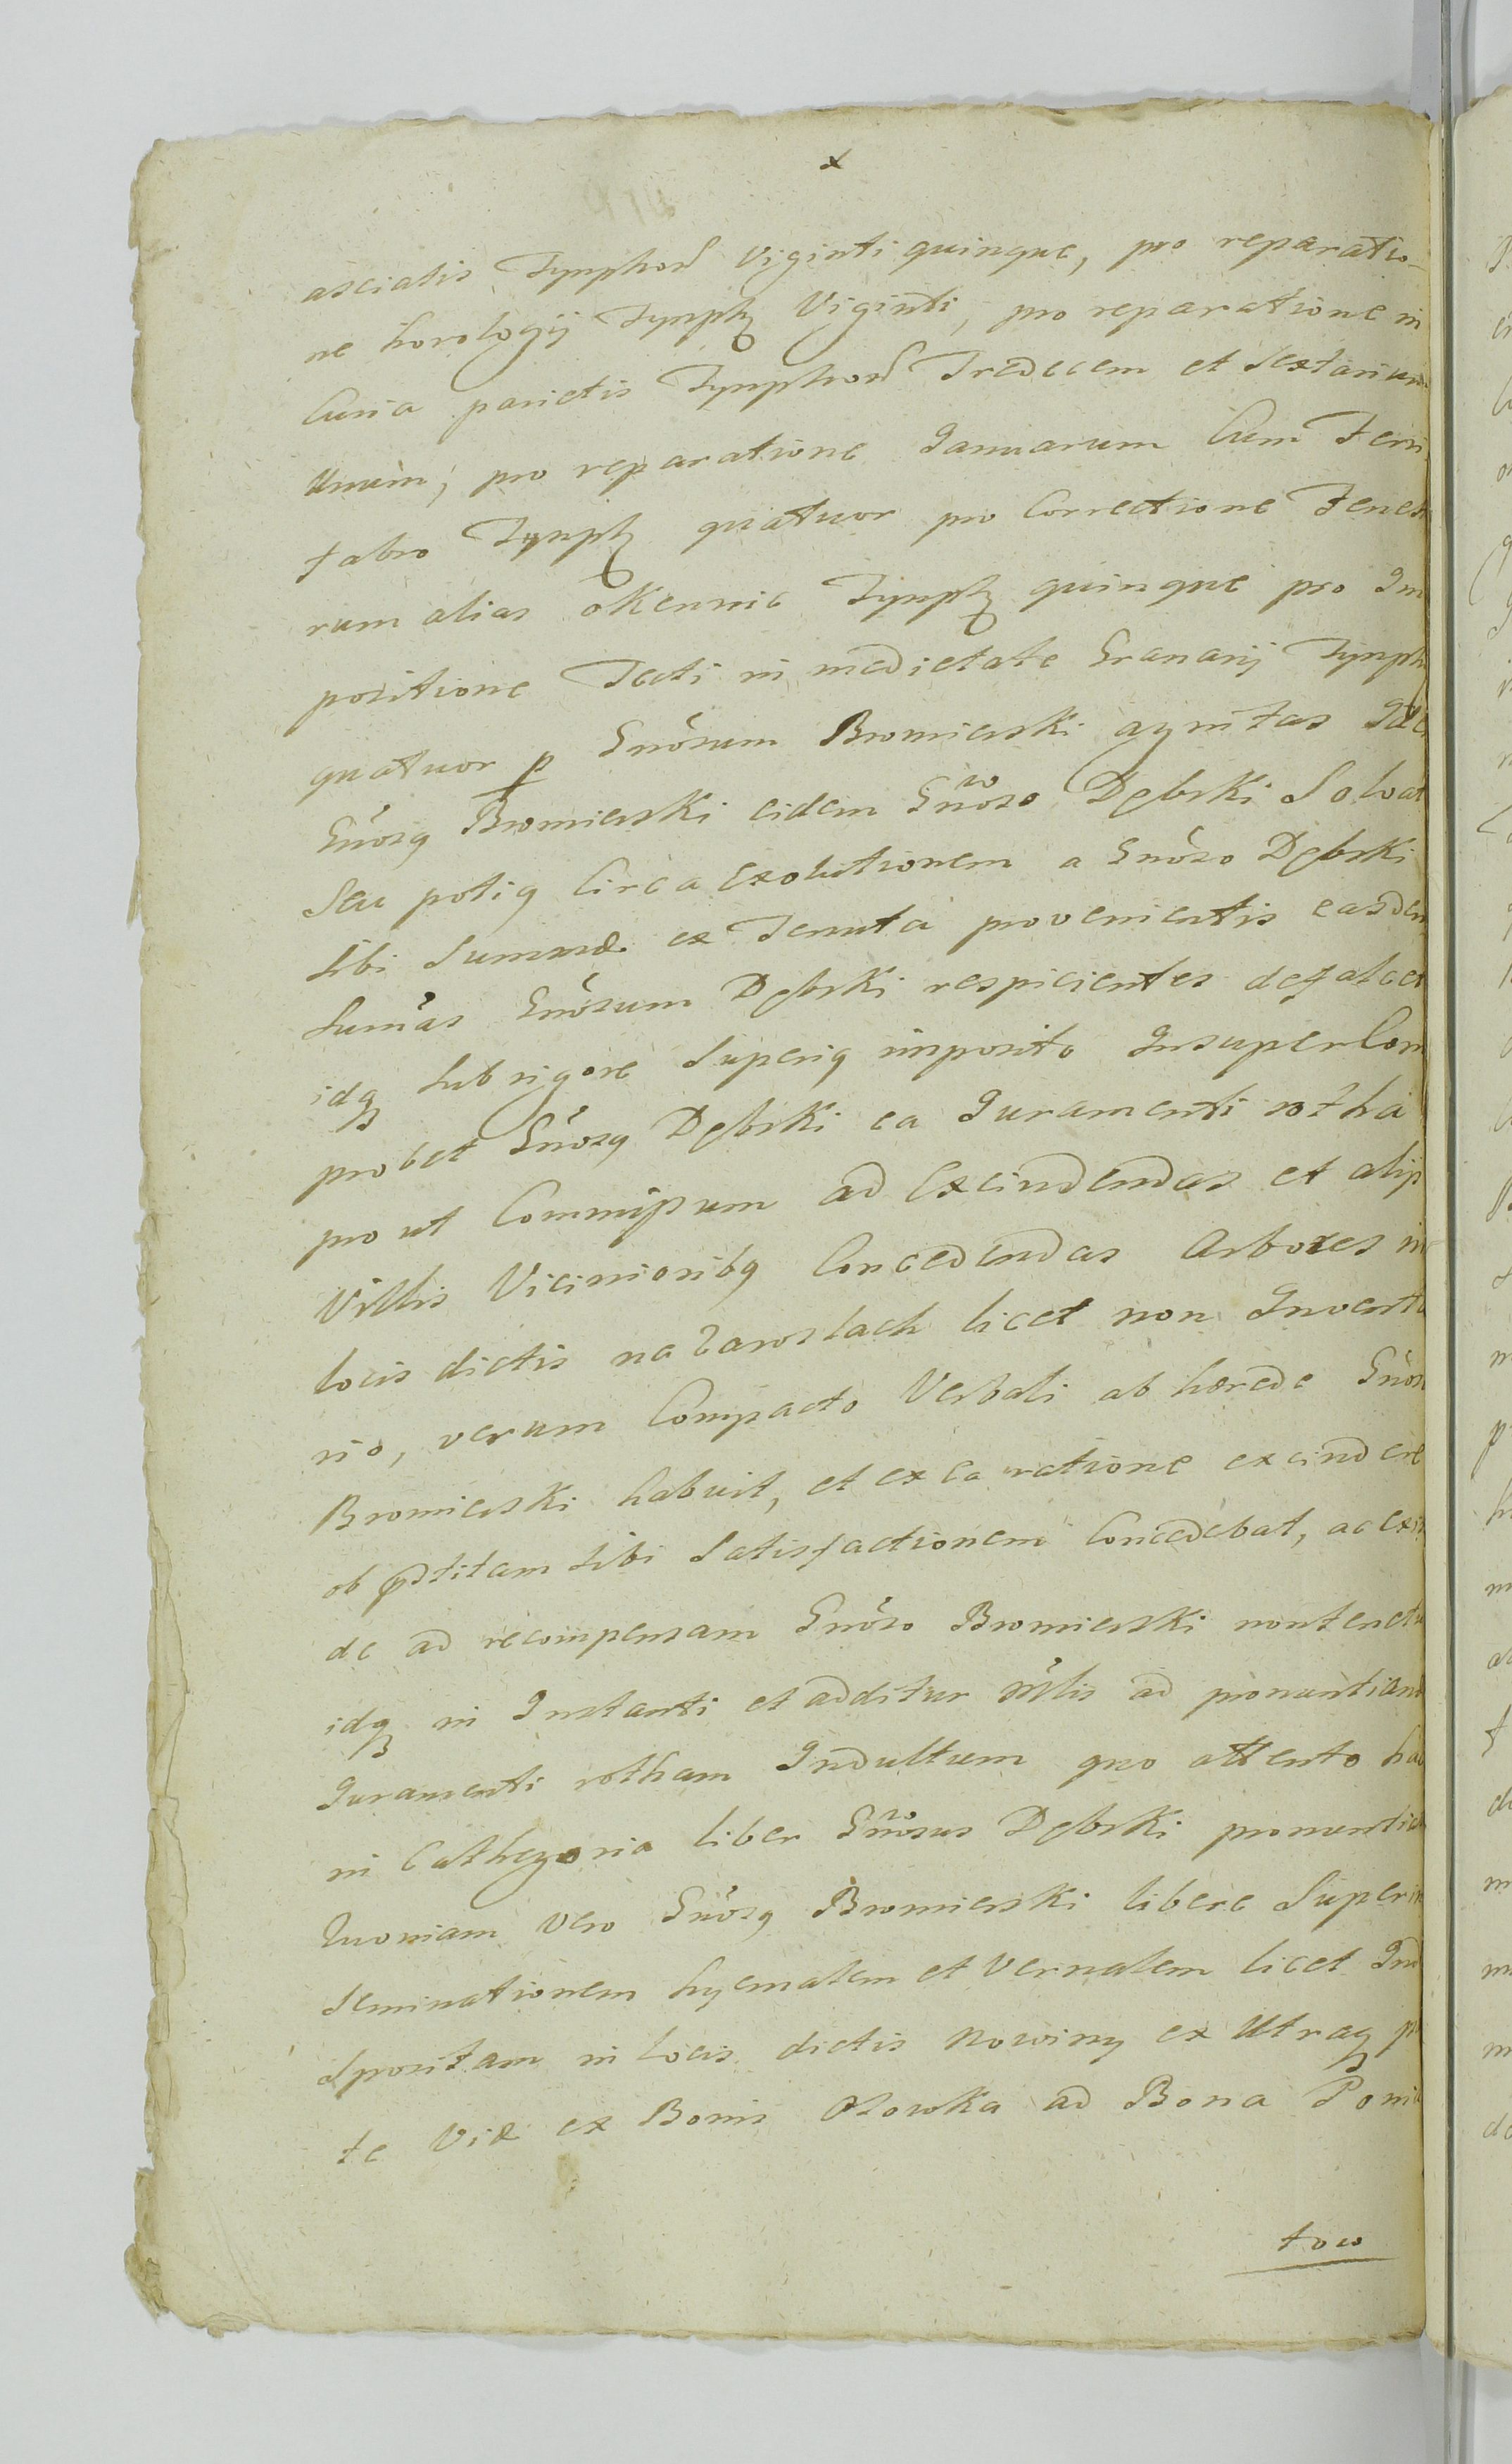 x
asciatis Tynphorũ Viginti quinque, pro reparatio-
ne horologij Tynph Viginti, pro reparatione in
Curia parietis Tynphorũ Tredecem et Sextarium
Unum, pro reparatione Januarum Cum Ferri
fabro Tynph quatuor pro Correctione Fenest
rum alias okennic Tynph quinque pro Im
positione Tecti in medietate Granarij Tynph
quatuor p Gnõsum Bromierski agnitas
Gnõsq Bromierski eidem Gnõso Dębski Solvat
Seu potiq Circa Exolutionem a Gnõso Dębski
Sibi Summæ ex Tenuta provenientis easdem
Sumãs Gnõsum Dębski respicientes defalcet
idq Sub rigore Superiq imposito Insuper Com
probet Gnõsq Dębski ea Juramenti rotha
prout Commissum ad Excindendas et alijs
Villis Vicinioribq Concedendas Arbores in
locis dictis na Zaroslach licet non Inventa
rio, verum Compacto Verbali ab hærede Gnõso
Bromierski habuit, et ex ea ratione excindere
ob Satisfactionem Concedebat, ac
de ad recompensam Gnõso Bromierski non tenetu
idq in Instanti et additur ad pronuntiand
Juramenti rotham Indultum quo attento hac
in Cathegoria liber Gnõsus Dębski pronuntia
Quoniam Vero Gnõsq Bromierski libere Superin
Seminationem hyemalem et Vernalem licet
Spositam in locis dictis Nowiny ex Utraq p
te Viæ ex Bonis Ozowka ad Bona Ponia
tow